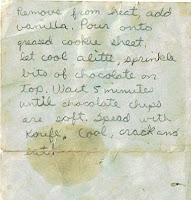 Remove from heat, add
vanilla. Pour onto
greased cookie sheet.
Let cool alittl, sprinkle
bits of chocolate on
top. Wait 5 minutes
until chocolate chips
are soft. Spead with
Knife. Cool, crack and
eat!